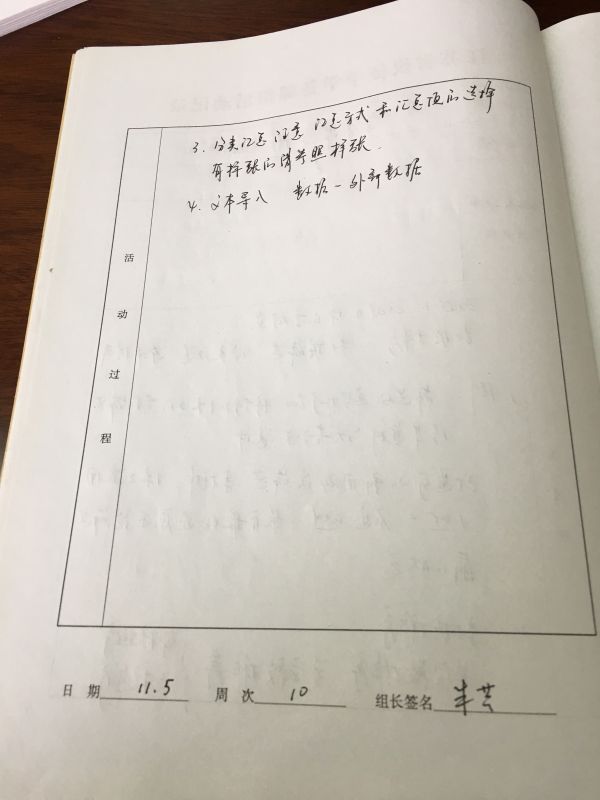 3. 分类汇总 注意 汇总方式 和汇总项的选择
有样张的请参照样张.
4. 文本导入 数据-外部数据
活
动
过
程
日 期 11.5 周 次 10 组长签名